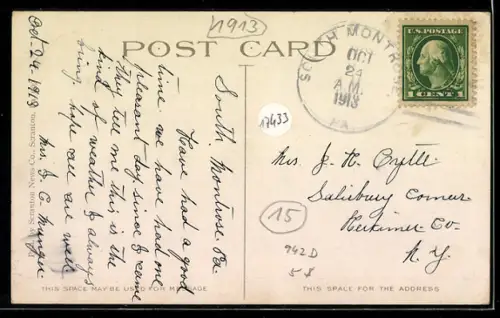 1913
POST CARD
Oct. 24-1913
South Montrose Pa.
Have had a good
time we have had one
pleasant day since I came
they tell me this is the
kind of weather I always
bring hope all are well
Mrs. J. C. Munger
SOUTH MONTROSE
OCT
24
A.M.
1913
PA.
U.S. POSTAGE
1 CENT 1
17433
Mrs J. H.
Salisbury Corners
Herkimer Co.
N. Y.
15
942D
58
Scranton News Co., Scranton
THIS SPACE MAY BE USED FOR MESSAGE
THIS SPACE FOR THE ADDRESS